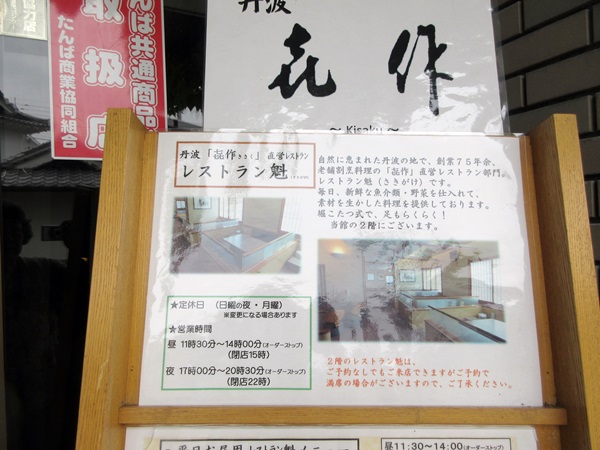 んば共通商品
取扱店
たんば商業協同組合
丹波
㐂作
～ Kisaku ～
丹波「㐂作きさく」直営レストラン
レストラン魁
自然に恵まれた丹波の地で、創業75年余、
老舗割烹料理の「㐂作」直営レストラン部門、
レストラン魁（さきがけ）です。
毎日、新鮮な魚介類・野菜を仕入れて、
素材を生かした料理を提供しております。
堀こたつ式で、足もらくらく！
当館の2階にございます。
★定休日 （日曜の夜・月曜）
※変更になる場合あります
★営業時間
昼 11時30分～14時00分(オーダーストップ)
(閉店15時)
夜 17時00分～20時30分(オーダーストップ)
(閉店22時)
2階のレストラン魁は、
ご予約なしでもご来店できますがご予約で
満席の場合がございますので、ご了承ください。
昼11:30～14:00(オーダーストップ)